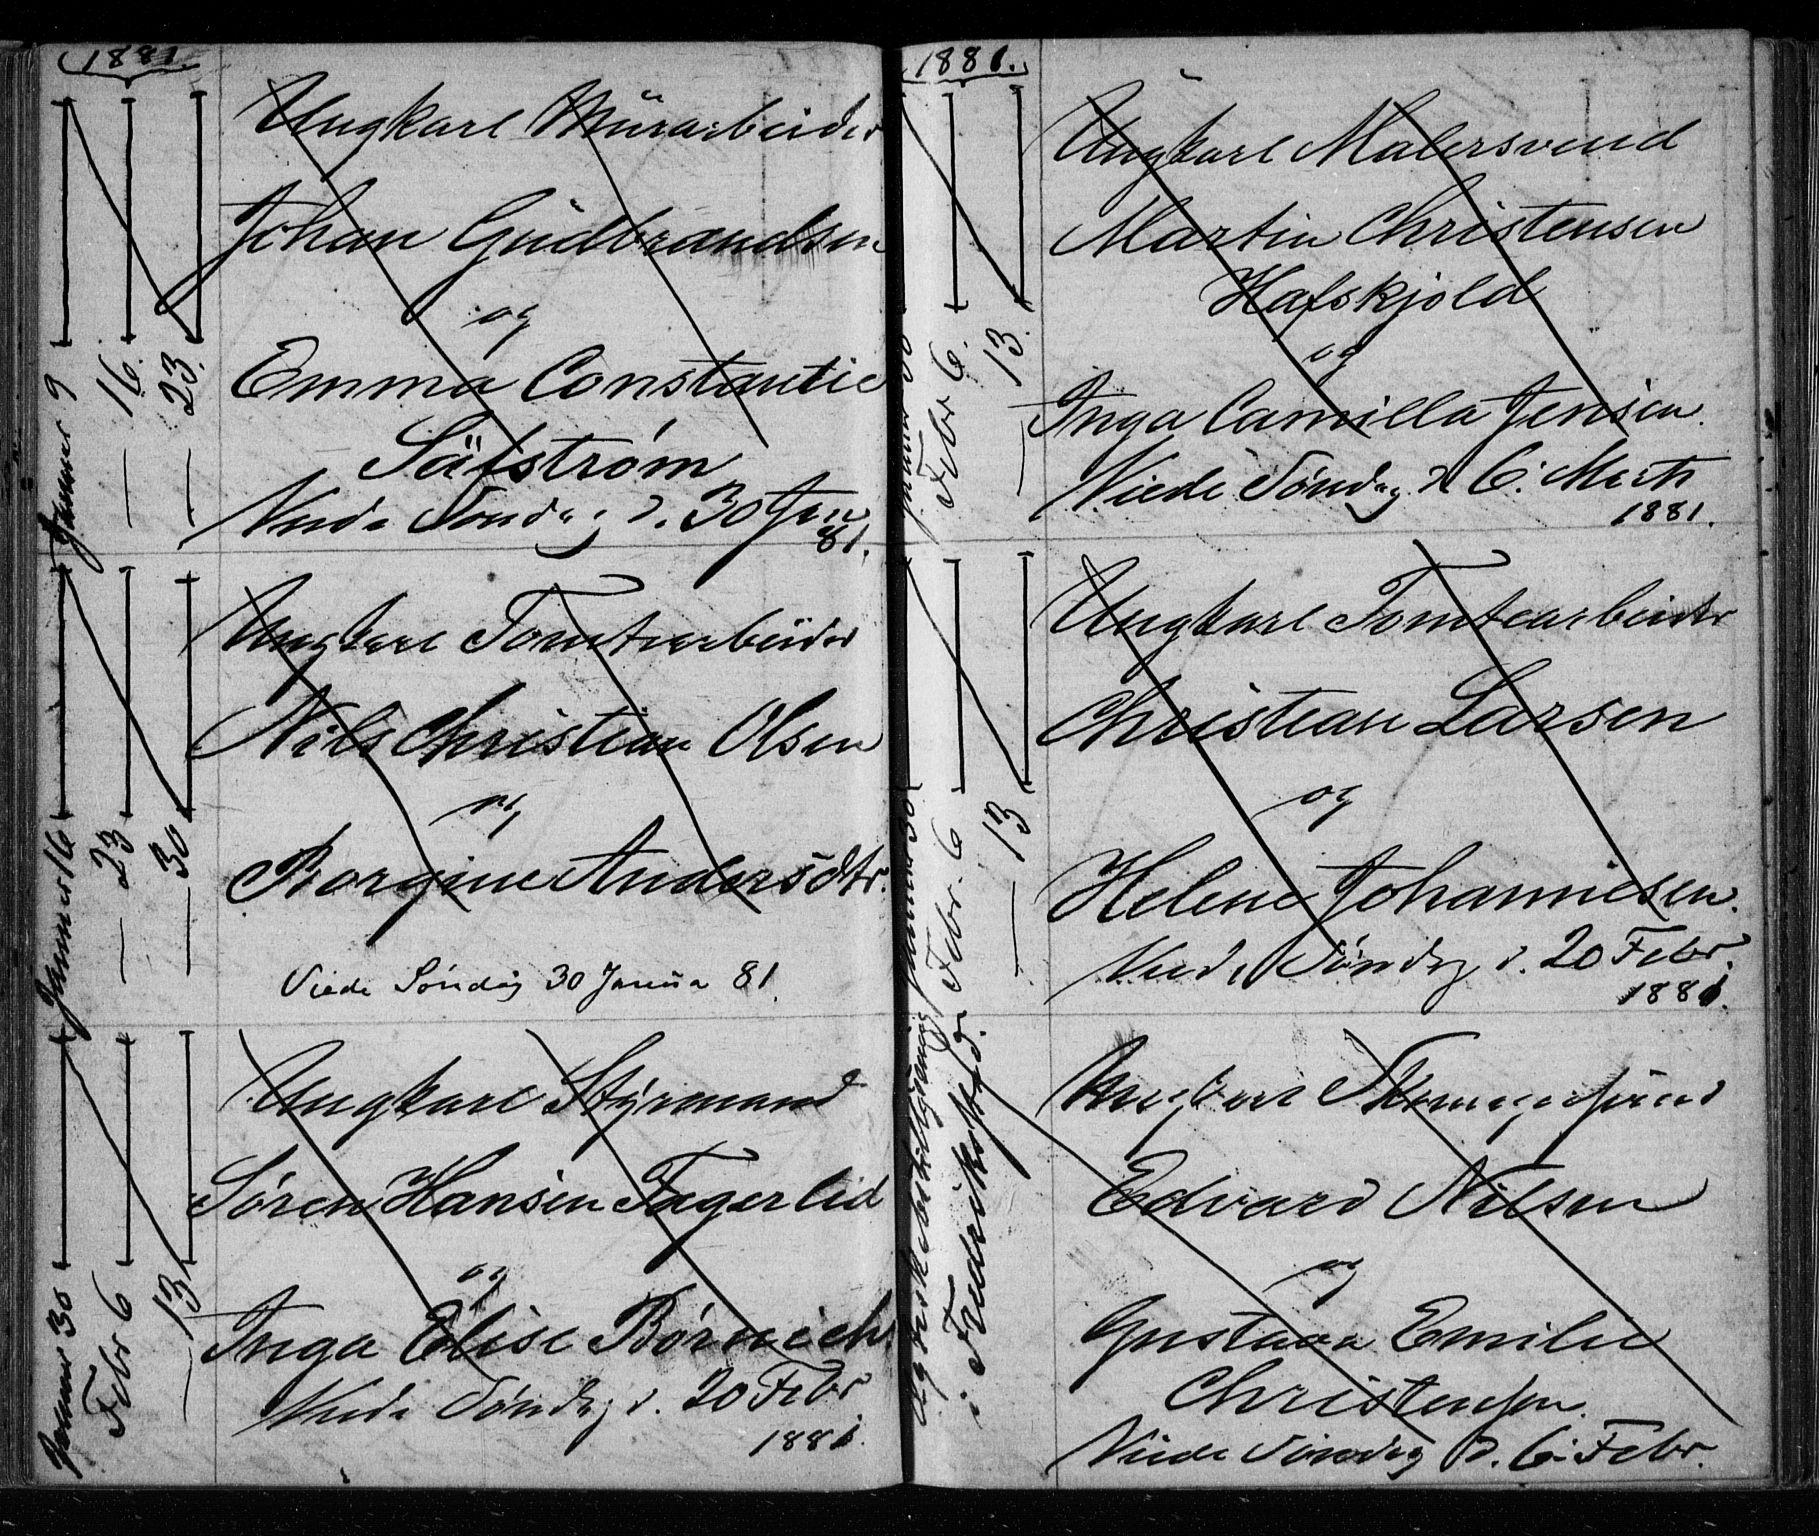 1881.
Januar 9
— 16.
— 23.
Ungkarl Mürarbeider
Johan Gudbrandsen
og
Emma Constantie
Säfström
Viede Søndag d. 30 Jan
81.
Januar 16
— 23
— 30
Ungkarl Tomtearbeider
Nils Christian Olsen
og
Borgine Andersdtr.
Viede Søndag 30 Janua 81.
Januar 30
Febr 6
— 13
Ungkarl Styrmand
Søren Hansen Fagerlid
og
Inga Elise Børnich.
Viede Søndag d. 20 Febr
1881.
1881.
Januar 30
Febr 6.
— 13.
Ungkarl Malersvend
Martin Christensen
Hafskjold
og
Inga Camilla Jensen.
Viede Søndag d 6. Marts
1881.
Januar 30
Febr. 6
— 13
Ungkarl Tomtearbeider
Christian Larsen
og
Helene Johannesen.
Viede Søndag d. 20 Febr.
1881.
i Fredriksstad.
Ungkarl
Edvard Nilsen
og
Gustava Emilie
Christensen.
Viede Søndag d. 6. Febr.